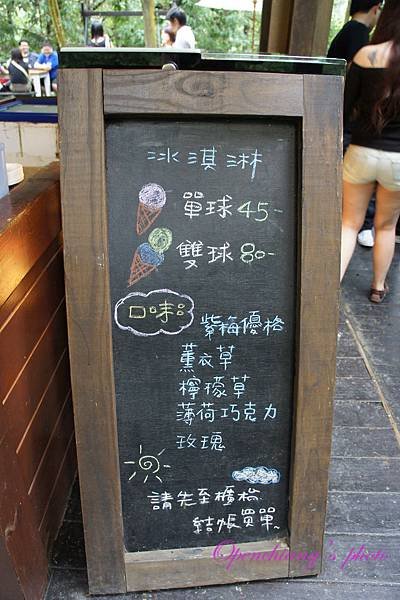 冰淇淋
單球 45-
雙球 80-
口味:
紫梅優格
薰衣草
檸檬草
薄荷巧克力
玫瑰
請先至櫃檯
結帳買單~